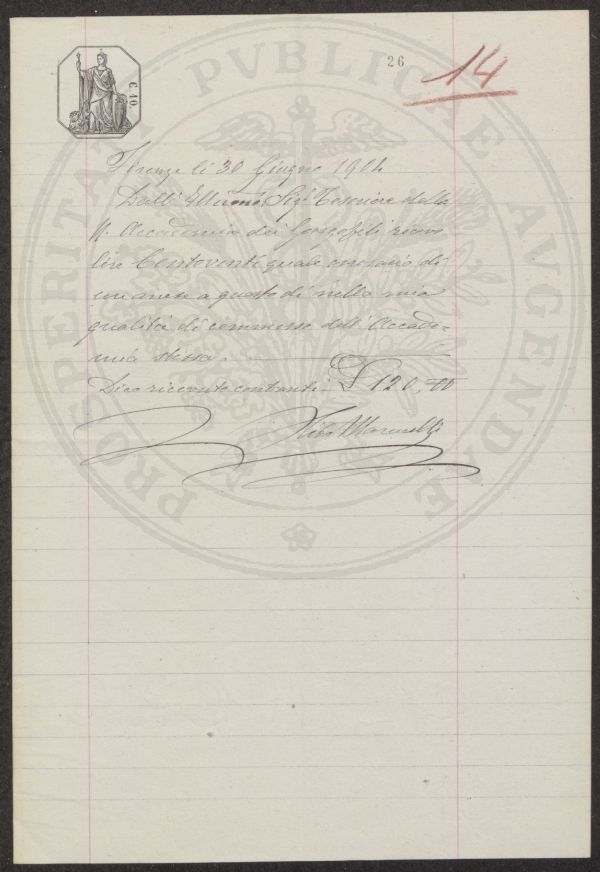 26
14
C. 10.
PROSPERITATI PVBLICAE AVGENDAE
Firenze li 30 Giugno 1904
Dall' Ill.mo Sig.r Tesoriere della
R. Accademia dei Georgofili ricevo
lire Centoventi quale onorario di
un mese a questo dì nella mia
qualità di commesso dell' Accade-
mia stessa.
Dico ricevute contanti £ 120,00